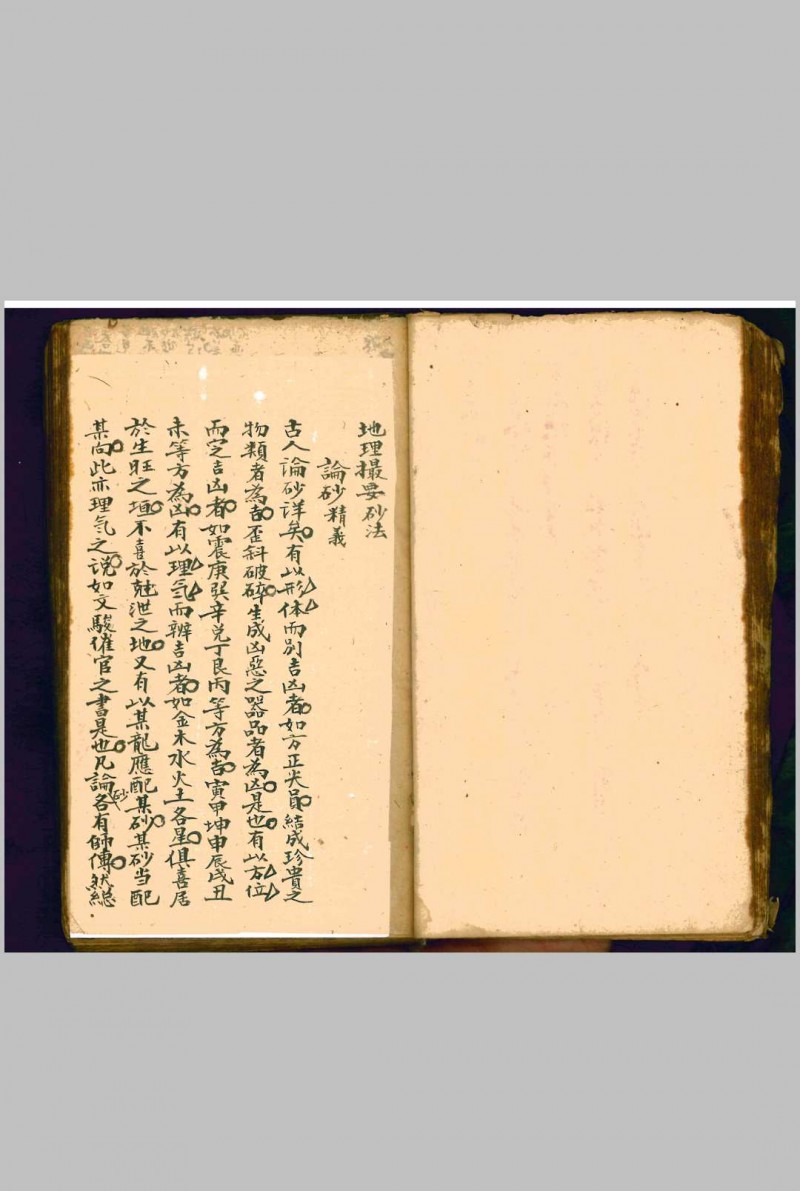 地理撮要砂法
論砂精義
古人論砂详矣有以形体而别吉凶者如方正尖員結成珍貴之
物類者為吉歪斜破碎生成凶惡之器品者為凶是也有以方位
而定吉凶者如震庚巽辛兑丁艮丙等方為吉寅甲坤申辰戌丑
未等方為凶有以理氣而辨吉凶者如金木水火土各星俱喜居
於生旺之垣不喜於尅泄之地又有以某龍應配某砂某砂当配
某向此亦理氣之说如文駿催官之書是也凡論砂各有師傳然總